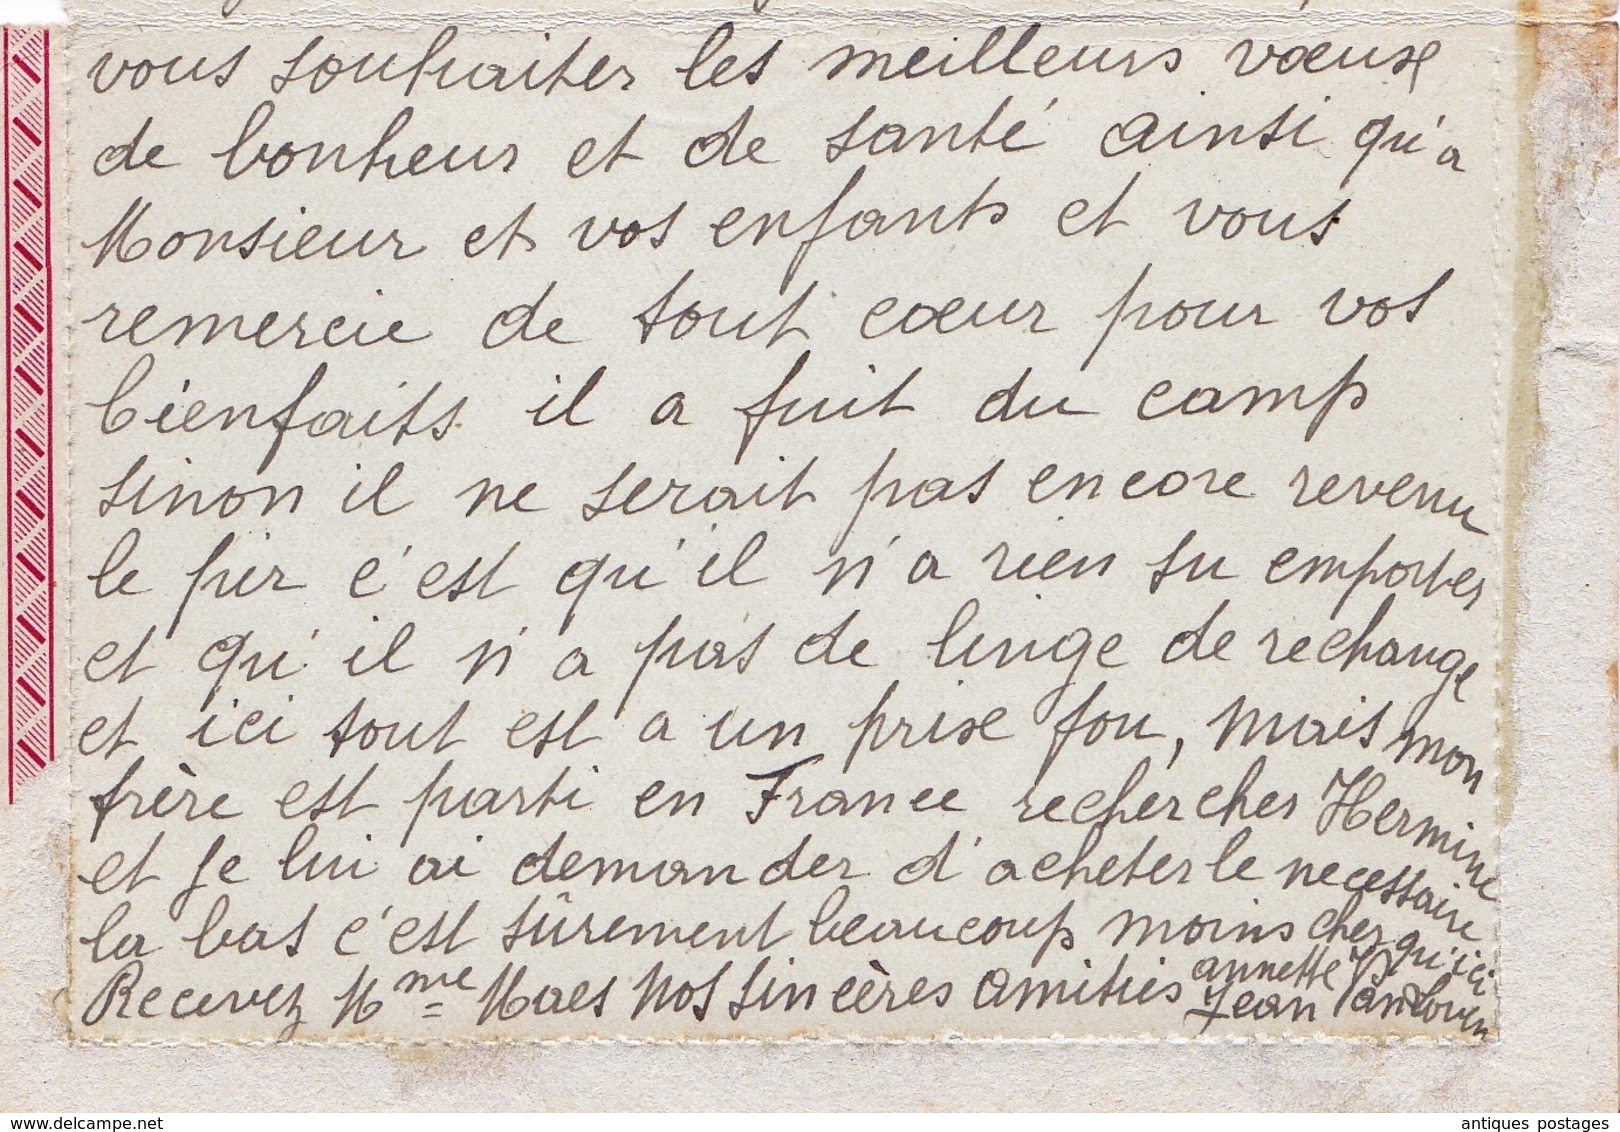 vous souhaiter les meilleurs vœux
de bonheur et de santé ainsi qu'a
Monsieur et vos enfants et vous
remercie de tout cœur pour vos
bienfaits il a fuit du camp
sinon il ne serait pas encore revenu
le pir c'est qu'il n'a rien su emporter
et qu'il n'a pas de linge de rechange
et ici tout est a un prix fou, mais mon
frère est parti en France rechercher Hermine
et je lui ai demander d'acheter le necessaire
la bas c'est sûrement beaucoup moins cher qu'ici
Recevez Mme Maes nos sincères amitiés annette
Jean
www.delcampe.net
antiques postages